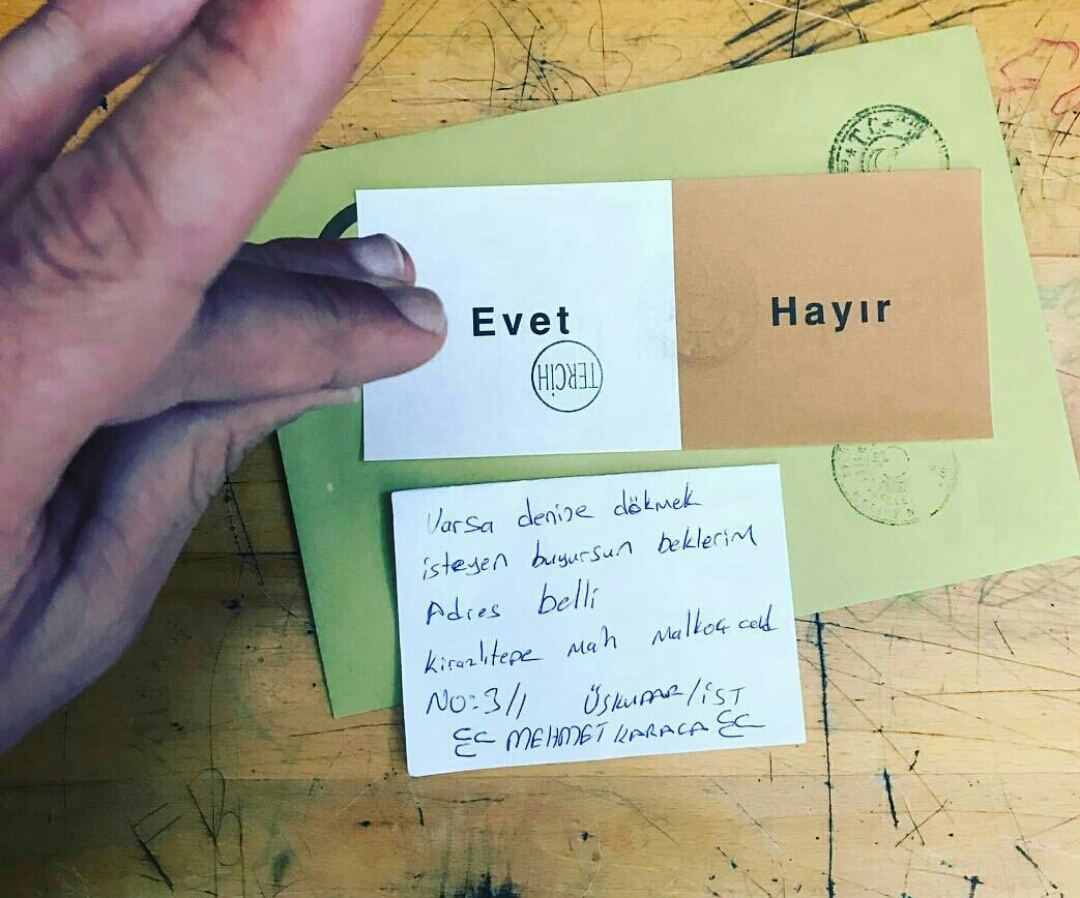 T.C.
Evet
Hayır
TERCİH
Varsa denize dökmek
isteyen buyursun beklerim
Adres belli
Kirazlıtepe Mah Malkoç cadd
NO:3/1 ÜSKUDAR/İST
MEHMET KARACA